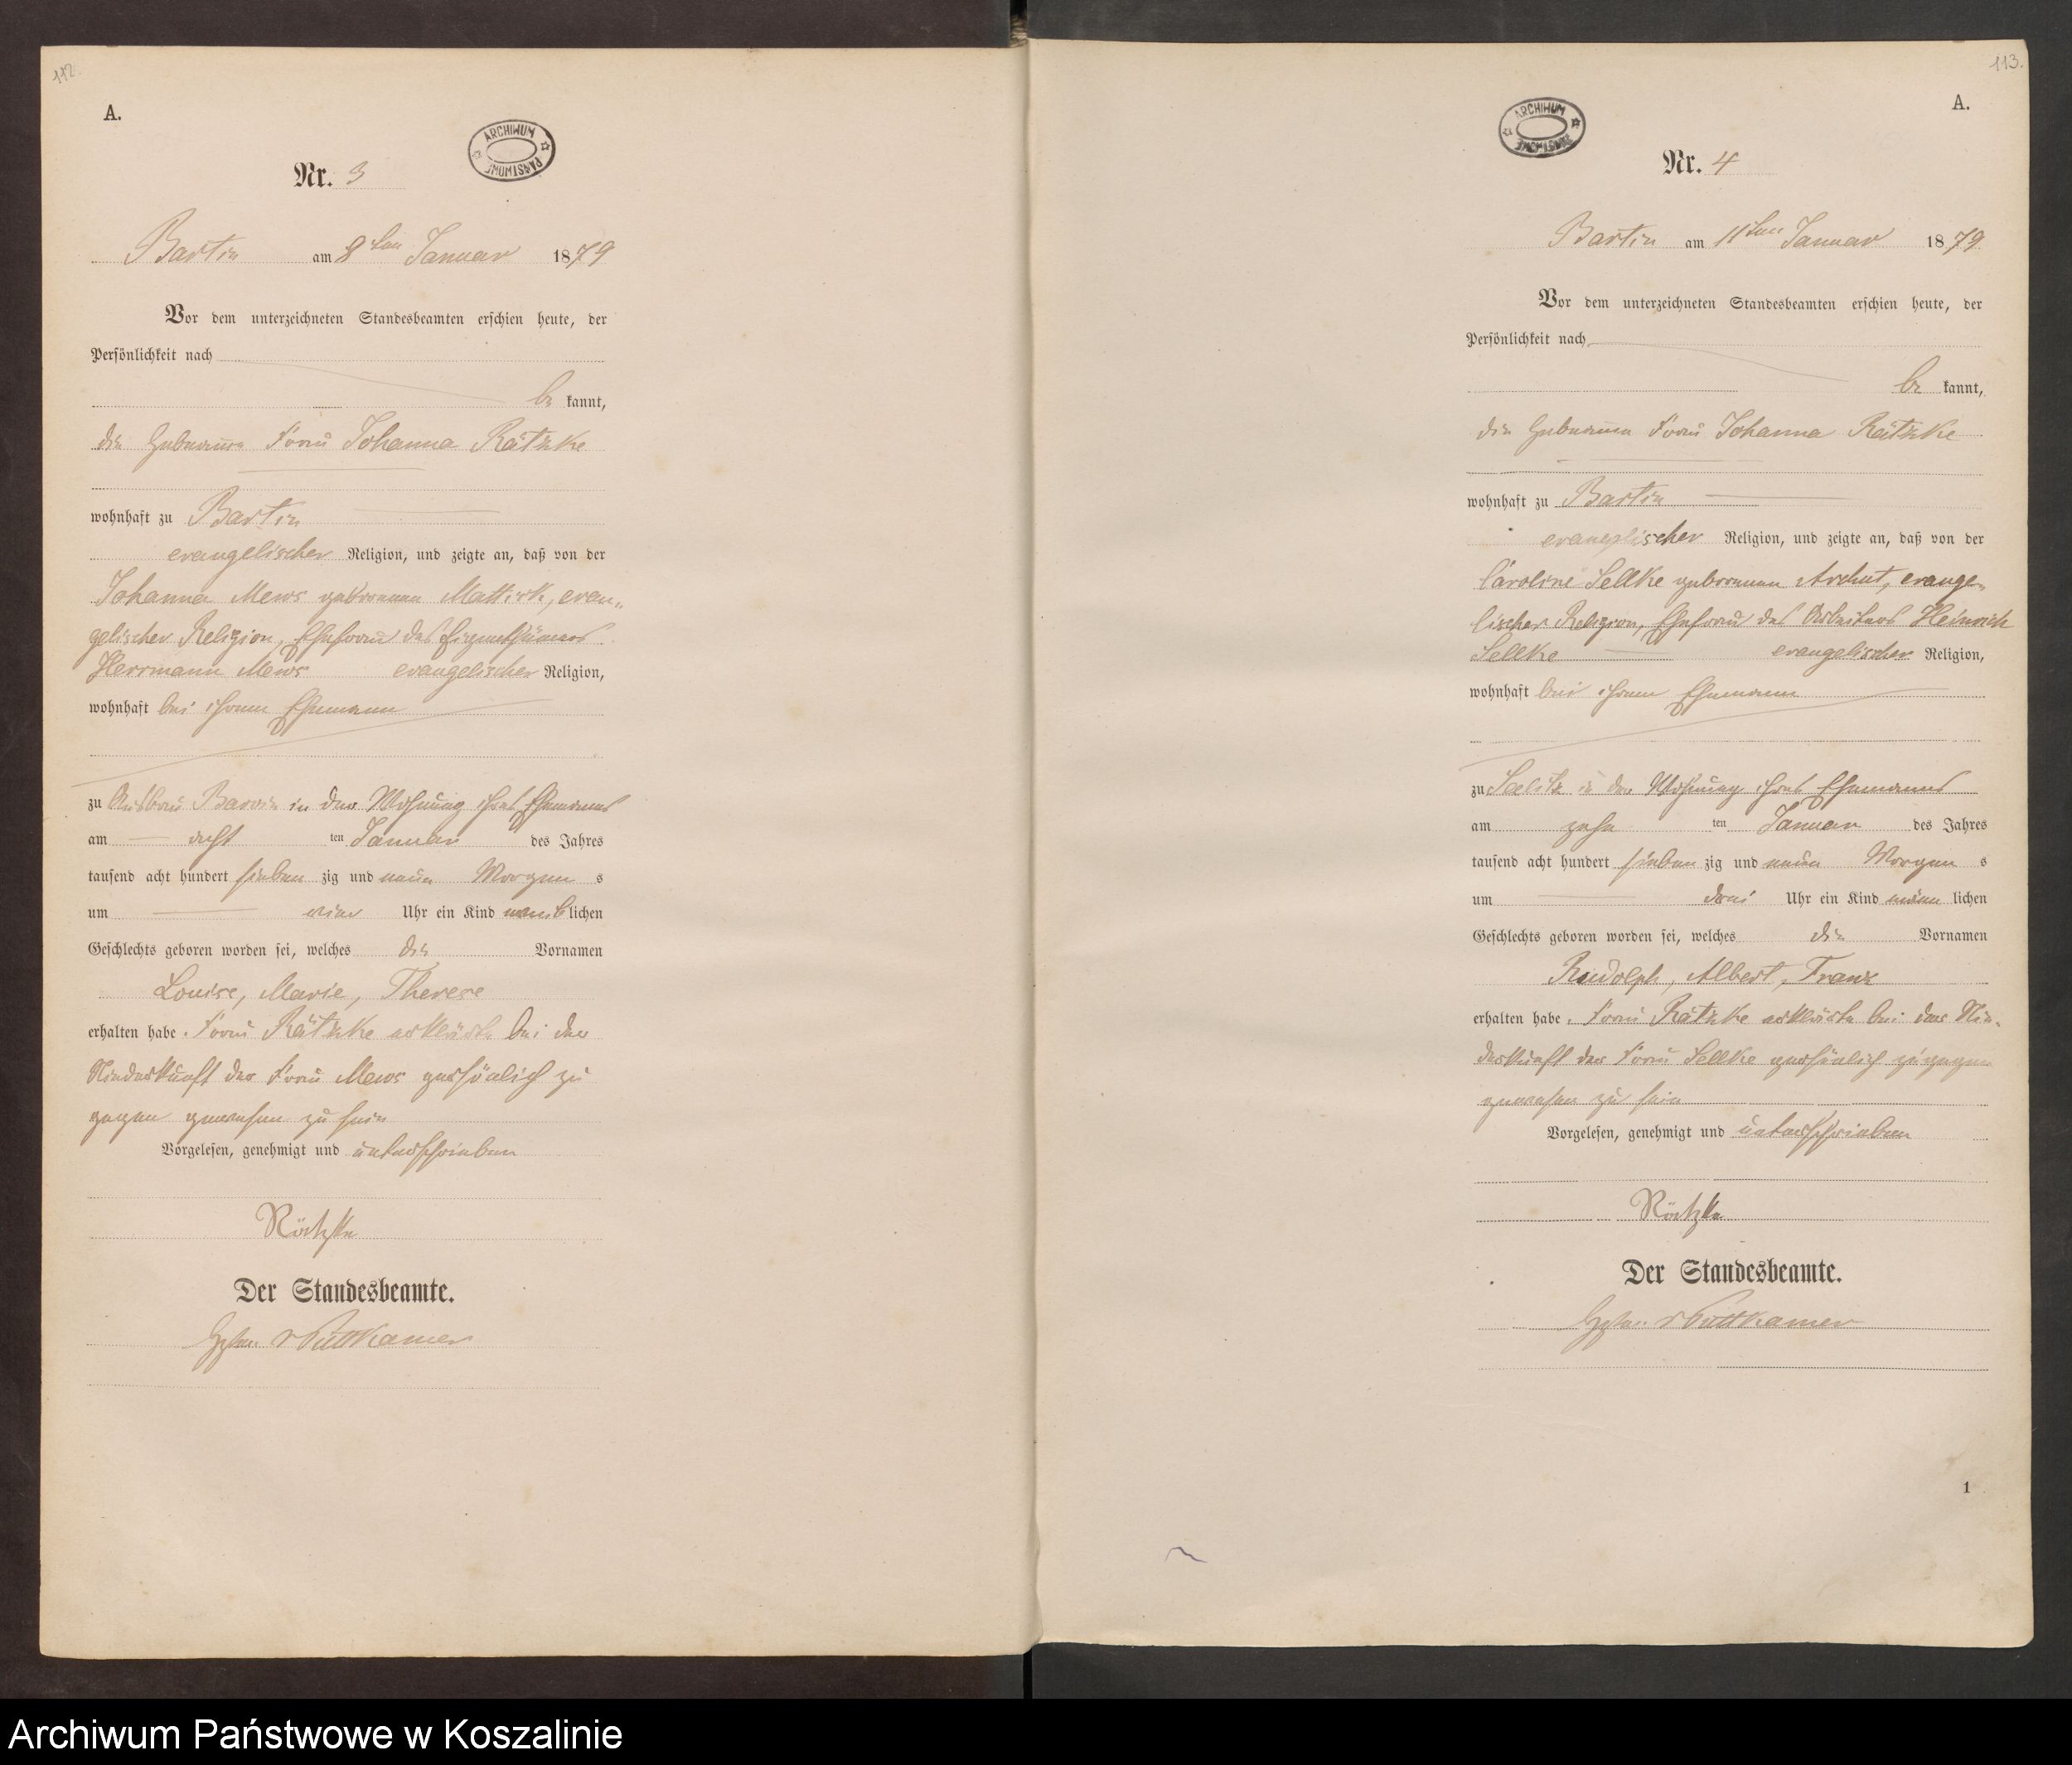 112.
A.
ARCHIWUM PAŃSTWOWE
Nr. 3
Bartin am 8ten Januar 1879
Vor dem unterzeichneten Standesbeamten erschien heute, der
Persönlichkeit nach
be kannt,
die Hebamme Frau Johanna Rätzke
wohnhaft zu Bartin
evangelischer Religion, und zeigte an, daß von der
Johanna Mews geborenen, evan-
gelischer Religion, Ehefrau des Eigenthümers
Herrmann Mews evangelischer Religion,
wohnhaft bei ihrem Ehemann
zu Ausbau Barvin in der Wohnung ihres Ehemannes
am acht ten Januar des Jahres
tausend acht hundert sieben zig und neun Morgen s
um vier Uhr ein Kind weib lichen
Geschlechts geboren worden sei, welches die Vornamen
Louise, Marie, Therese
erhalten habe. Frau Rätzke erklärte bei der
Niederkunft der Frau Mews persönlich zu
gegen gewesen zu sein
Vorgelesen, genehmigt und unterschrieben
Rätzke
Der Standesbeamte.
v Puttkamer
113.
A.
ARCHIWUM PAŃSTWOWE
Nr. 4
Bartin am 11ten Januar 1879
Vor dem unterzeichneten Standesbeamten erschien heute, der
Persönlichkeit nach
be kannt,
die Hebamme Frau Johanna Rätzke
wohnhaft zu Bartin
evangelischer Religion, und zeigte an, daß von der
Caroline Sellke geborenen, evange-
lischer Religion, Ehefrau des Arbeiters Heinrich
Sellke evangelischer Religion,
wohnhaft bei ihrem Ehemann
zu Seelitz in der Wohnung ihres Ehemannes
am zehn ten Januar des Jahres
tausend acht hundert sieben zig und neun Morgen s
um drei Uhr ein Kind männ lichen
Geschlechts geboren worden sei, welches die Vornamen
Rudolph, Albert, Franz
erhalten habe. Frau Rätzke erklärte bei der Nie-
derkunft der Frau Sellke persönlich zugegen
gewesen zu sein
Vorgelesen, genehmigt und unterschrieben
Rätzke
Der Standesbeamte.
v Puttkamer
1
Archiwum Państwowe w Koszalinie